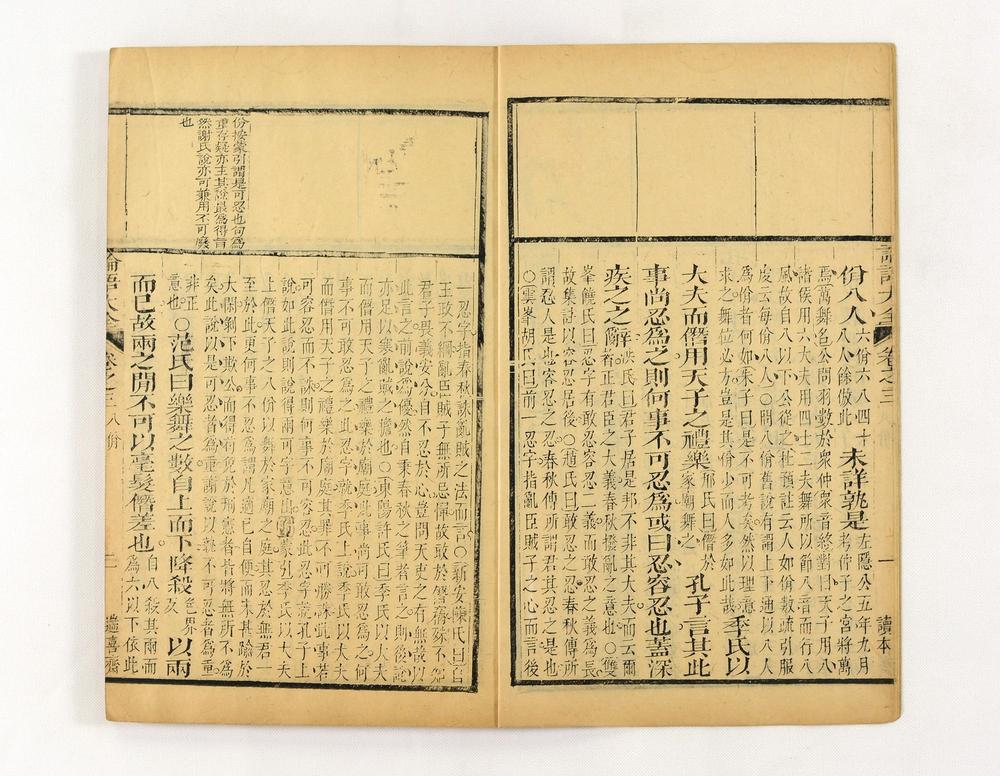 論語大全 卷之三 一 讀本
佾八人 六佾六八四十
八人餘倣此
未詳孰是 左隱公五年九月
考仲子之宮將萬
焉萬舞名公問羽數於衆仲衆仲對曰天子用八
諸侯用六大夫用四士二夫舞所以節八音而行八
風故自八以下公從之杜預註云人如佾數疏引服
虔云每佾八人○問八佾舊說有謂上下通以八人
為佾者何如朱子曰是不可考矣然以理意
求之舞位必方豈是其佾少而人多如此哉
季氏以
大夫而僭用天子之禮樂 邢氏曰僭於
家廟舞之
孔子言其此
事尚忍為之則何事不可忍為或曰忍容忍也蓋深
疾之之辭 洪氏曰君子居是邦不非其大夫而云爾
者正君臣之大義春秋撥亂之意也○雙
峯饒氏曰忍字有敢忍容忍二義而敢忍之義為長
故集註以容忍居後○趙氏曰敢忍之忍春秋傳所
謂忍人是也容忍之忍春秋傳所謂君其忍之是也
○雲峯胡氏曰前一忍字指亂臣賊子之心而言後
一忍字指春秋誅亂賊之法而言○新安陳氏曰自
王政不綱亂臣賊子無所忌憚故敢於僭竊殊不知
君子畏義安分自不忍於心豈問天吏之有無哉以
此言之前說為優然自秉春秋之筆者言之則後說
亦足以寒亂賊之膽也○東陽許氏曰季氏以大夫
而僭用天子之禮樂於廟庭此事尚可敢忍為之何
事不可敢忍為之此忍字就季氏上說季氏以大夫
而僭用天子之禮樂於廟庭其罪不可勝誅此事若
可容忍而不誅則何事不可容忍此忍字就孔子上
說如此說則說得兩可字意出○蒙引季氏以大夫
上僭天子之八佾以舞於家廟之庭其忍於無君一
至於此更何事不忍為謂凡適已自便而未甚踰於
大閑剝下欺公而得苟免於刑憲者皆將無所不為
矣此說以是可忍者為重謝說以孰不可忍者為重
非正
意也
○范氏曰樂舞之數自上而下降殺 色界
反
以兩
而已故兩之閒不可以毫髮僭差也 自八殺其兩而
為六以下依此
佾按蒙引謂是可忍也句為
重存疑亦主其說最為得旨
然謝氏說亦可兼用不可廢
也
論語大全 卷之三 八佾 二 喜齋